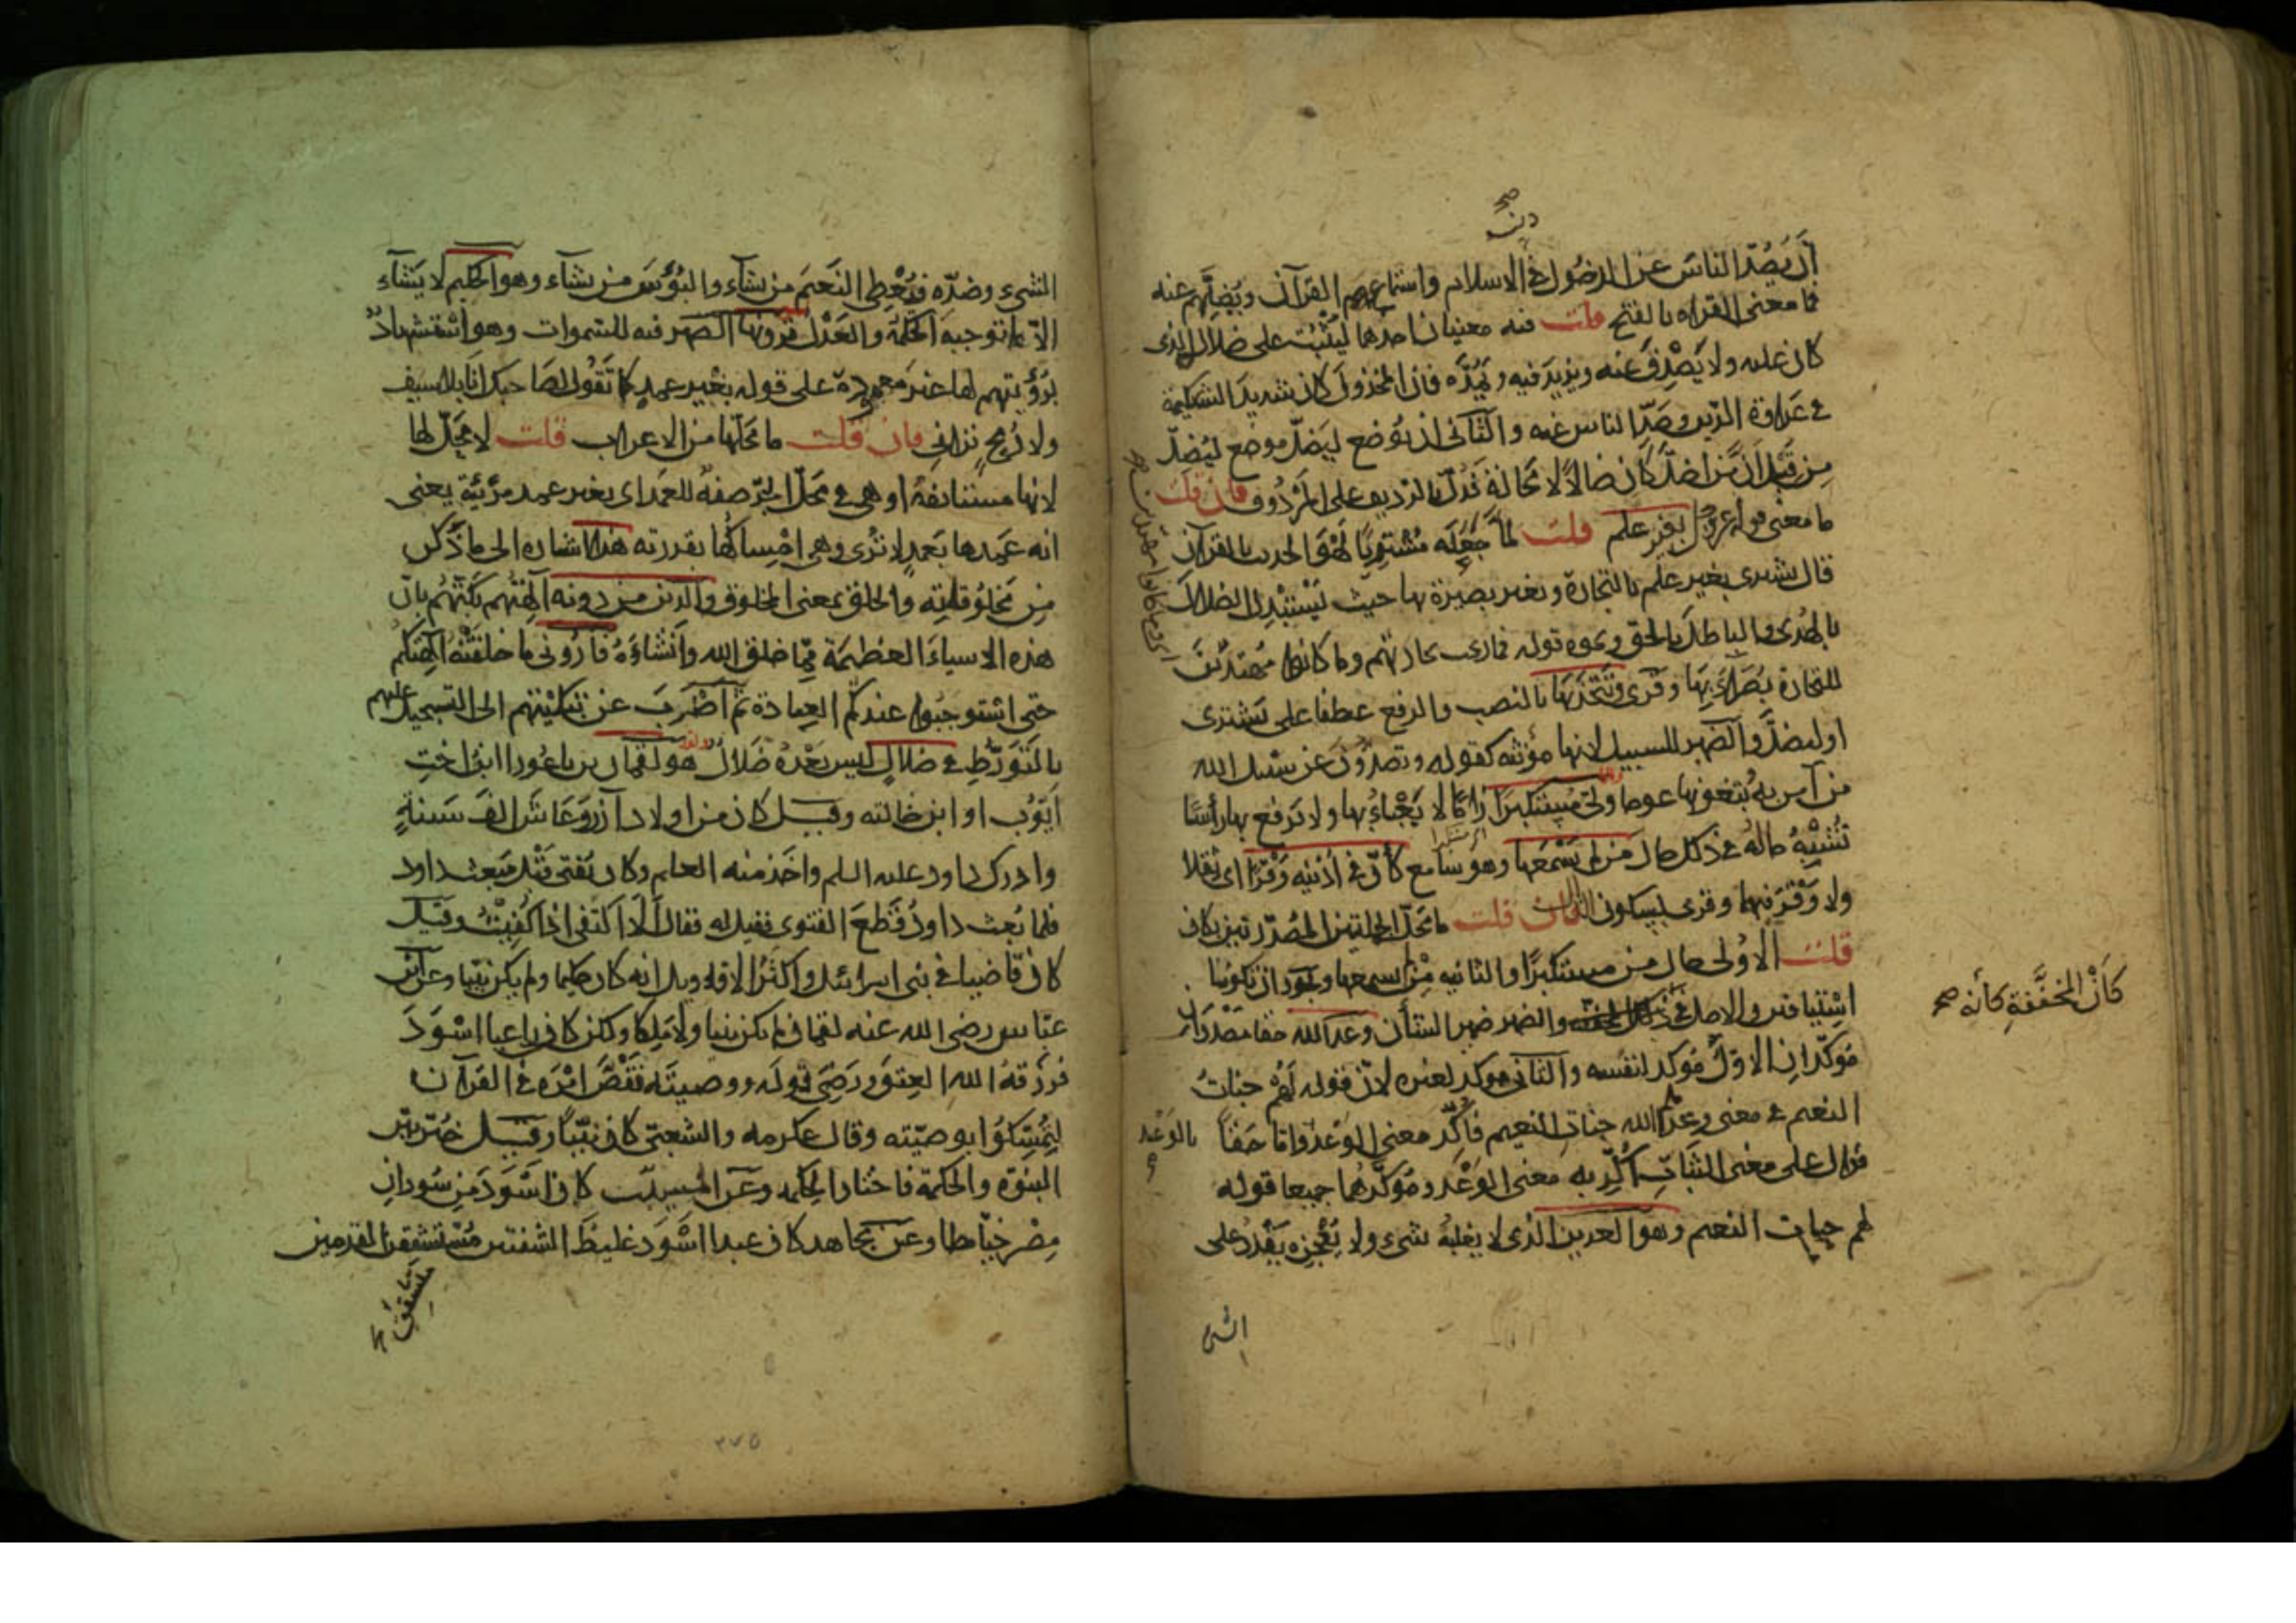 دين صح
أن يصد الناس عن الدخول في الاسلام واستماعهم القرآن ويضلهم عنه
فما معنى القراه بالفتح قلت فيه معنيان احدهما ليثبت على ضلاله الذى
كان عليه ولا يصدف عنه ويزيد فيه ويمده فان المخذول كان شديد الشكيمة
في عداوة الدين وصد الناس عنه والثانى ان يوضع ليضل موضع ليضل
من قبل ان من اضل كان ضالا لا محالة فدل بالرديف على المردوف فان قلت
ما معنى قوله بغير علم قلت لما جعله مشتريا لهو الحديث بالقرآن
قال يشترى بغير علم بالتجارة وبغير بصيرة بها حيث يستبدل الضلال
بالهدى والباطل بالحق ونحوه قوله فما ربحت تجارتهم وما كانوا مهتدين
اى وما كانوا مهتدين
للتجارة بصراء بها وقرى ويتخذها بالنصب والرفع عطفا على يشترى
او ليضل والضمير للسبيل لانها مؤنثه كقوله وتصدون عن سبيل الله
من آمن به وتبغونها عوجا ولى مستكبرا زاما لا يعبأ بها ولا يرفع بها رأسا
تشبه حاله في ذلك حال من لم يسمعها وهو سامع كأن في أذنيه وقرا اى ثقلا
ولا وقر فيهما وقرى بسكون الذال فان قلت ما محل الجملتين المصدرتين بكان
قلت الاولى حال من مستكبرا والثانيه من لم يسمعها ويجوز ان تكونا
استينافين والاصل في والضمير ضمير الشأن وعد الله حقا مصدران
كأن المخففة كأنه صح
مؤكدان الاول مؤكد لنفسه والثانى مؤكد لغيره لان قوله لهم جنات
النعيم في معنى وعدهم الله جنات النعيم فأكد معنى الوعد واما حقا
بالوعد
فدال على معنى الثبات أكد به معنى الوعد ومؤكدهما جميعا قوله
لهم جنات النعيم وهو العزيز الذى لا يغلبه شىء ولا يعجزه يقدر على
الشى
الشىء وضده فيعطى النعيم من يشآء والبؤس من يشآء وهو الحكيم لا يشآء
الا ما توجبه الحكمة والعدل ترونها الضمير فيه للسموات وهو استشهاد
برؤيتهم لها غير معمودة على قوله بغير عمد كما تقول لصاحبك انا بلا سيف
ولا رمح ترانى فان قلت ما محلها من الاعراب قلت لا محل لها
لانها مستانفة او هى في محل الجر صفة للعمد اى بغير عمد مرئية يعنى
انه عمدها بعمد لا ترى وهى امساكها بقدرته هذا اشاره الى ما ذكر
من مخلوقاته والخلق بمعنى المخلوق والذين من دونه آلهتهم بكتهم بان
هذه الاشياء العظيمة مما خلق الله وانشاءه فأرونى ما خلقته آلهتكم
حتى استوجبوا عندكم العبادة ثم اضرب عن تبكيتهم الى التسجيل عليهم
بالتورط في ضلال ليس بعده ضلال هو لقمان بن باعورا ابن اخت
أيوب او ابن خالته وقيل كان من اولاد آزر وعاش الف سنة
وادرك داود عليه السلم واخذ منه العلم وكان يفتى قبل مبعث داود
فلما بعث داود قطع الفتوى فقيل له فقال ألا اكتفى اذا كفيت وقيل
كان قاضيا في بنى اسرائيل واكثر الاقاويل انه كان حكيما ولم يكن نبيا وعن ابن
عباس رضى الله عنه لقمان لم يكن نبيا ولا ملكا ولكن كان راعيا اسود
فرزقه الله العتق ورضى قوله ووصيته فقص امره في القرآن
ليمسكوا بوصيته وقال عكرمه والشعبى كان نبيا وقيل خير بين
النبوة والحكمة فاختار الحكمه وعن ابن المسيب كان اسود من سودان
مصر خياطا وعن مجاهد كان عبدا اسود غليظ الشفتين متشقق القدمين
٢٧٥